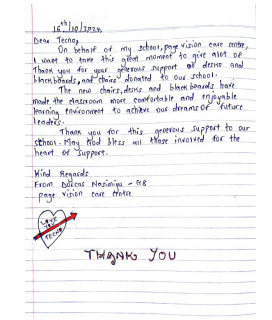 16th/10/2024
Dear Tecno,
On behalf of my school, page vision care centre,
I want to take this great moment to give alot of
Thank you for your generous support of desks and
blackboards, and chairs donated to our school.
The new chairs, desks and blackboards have
made the classroom more comfortable and enjoyable
learning environment to achieve our dreams of future
leaders.
Thank you for this generous support to our
school. May God bless all those involved for the
heart of support.
Kind Regards
From Dorcas Nasimiyu - G8
page vision care centre
LOVE
YOU
TECNO
THANK YOU